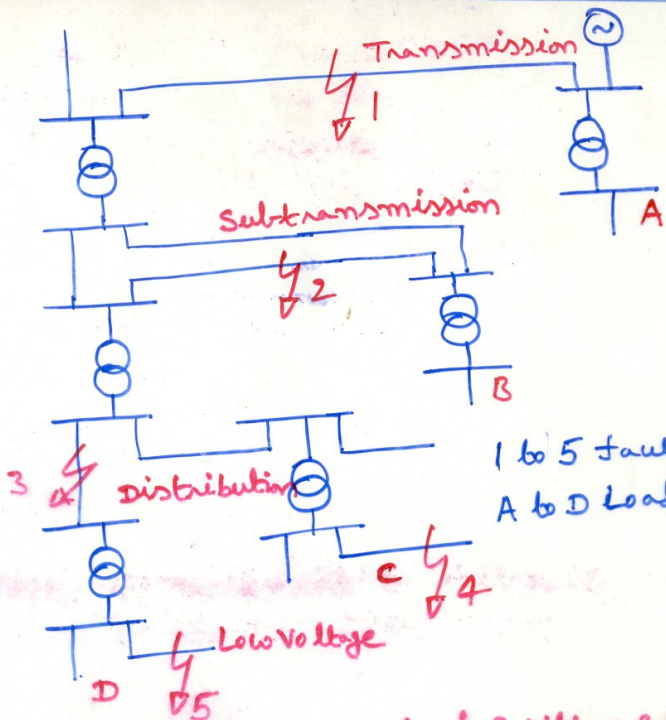 ~
Transmission
1
A
Subtransmission
2
B
1 to 5
3
Distribution
A to D Load
C
4
Low Voltage
D
5